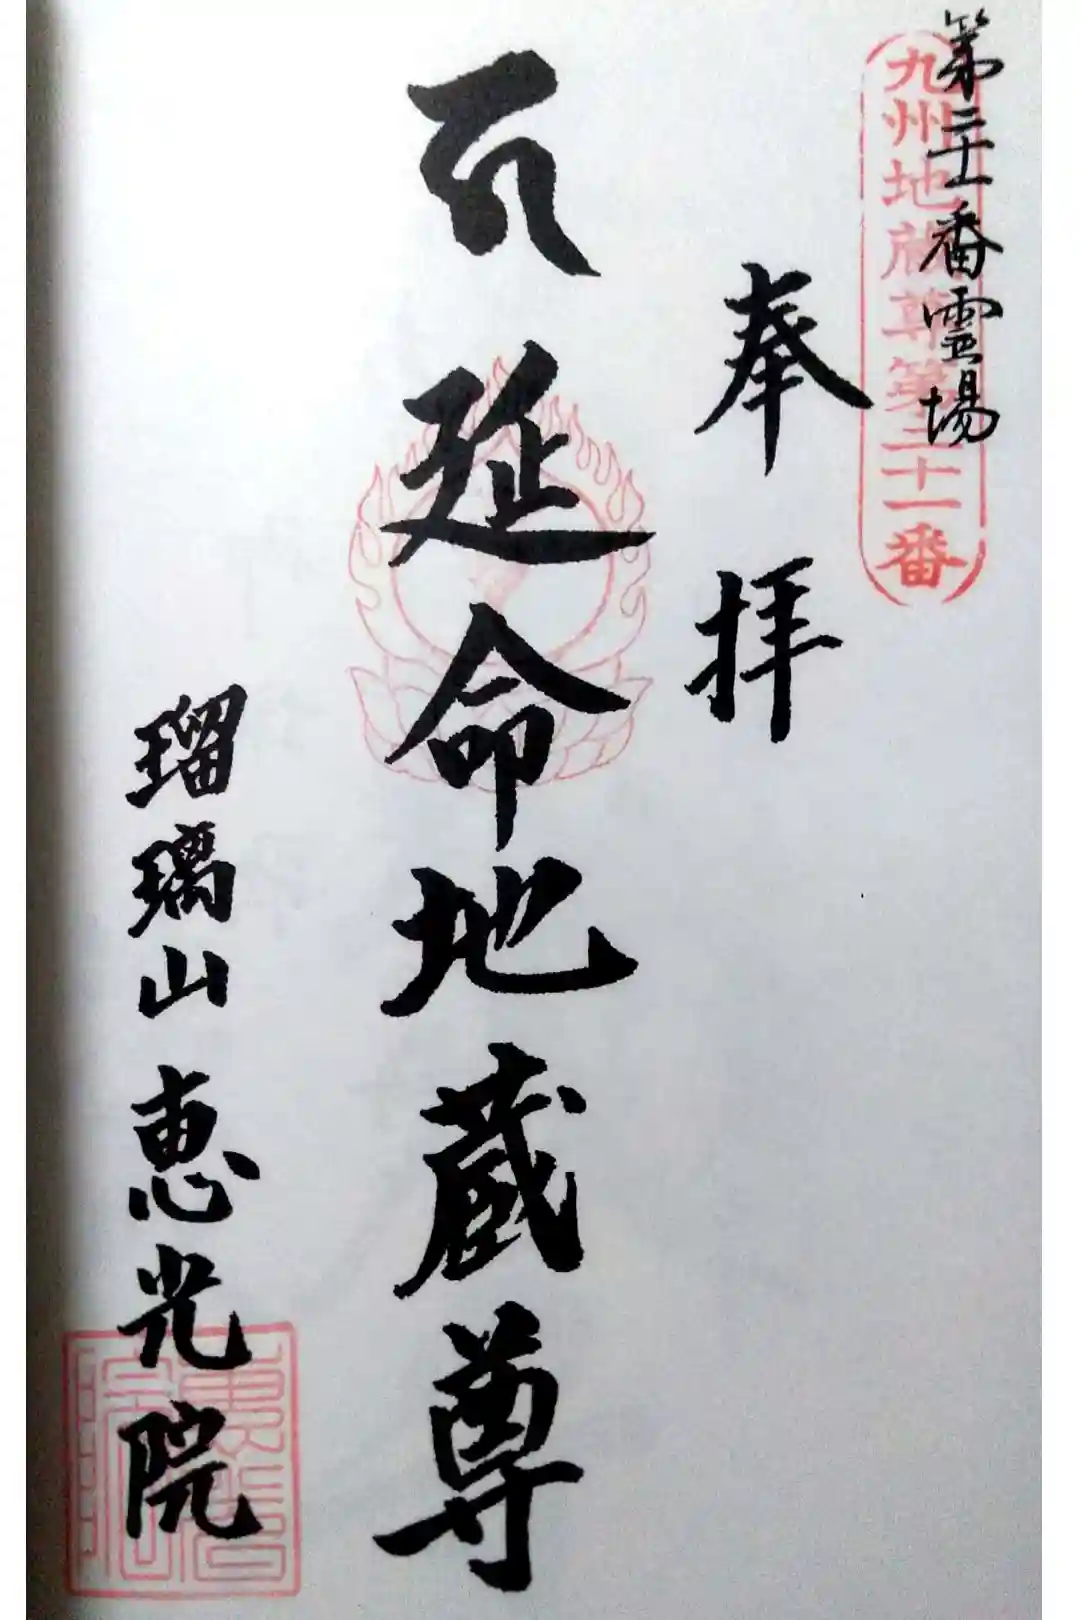 第二十一番霊場
九州地蔵尊第二十一番
奉拝
𑖮 延命地蔵尊
瑠璃山 恵光院